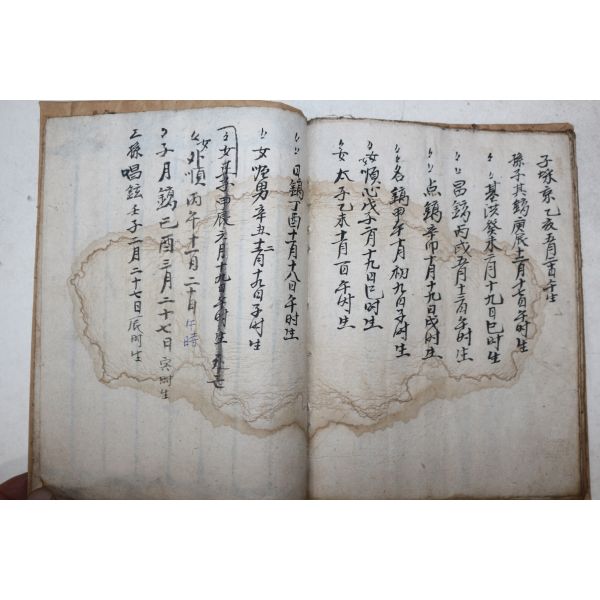 子埰京乙亥五月二一日午生
孫子其鎬庚辰十一月十七日午时生
〻〻基洪癸未二月十九日巳时生
〻〻昌鎬丙戌五月十三日午时生
〻〻点鎬辛卯十月十九日戌时生
〻〻名鎬甲午十月初九日子时生
〻女順心戊子二月十九日巳时生
〻女太子乙未十二月一日午时生
〻〻日鎬丁酉十一月十八日午时生
〻女姪男辛丑十二月十九日子时生
〻女子甲辰元月十九日午时生
〻女外順丙午十一月二十日午時
〻子月鎬己酉三月二十七日寅时生
三孫唱鉉壬子二月二十七日辰时生